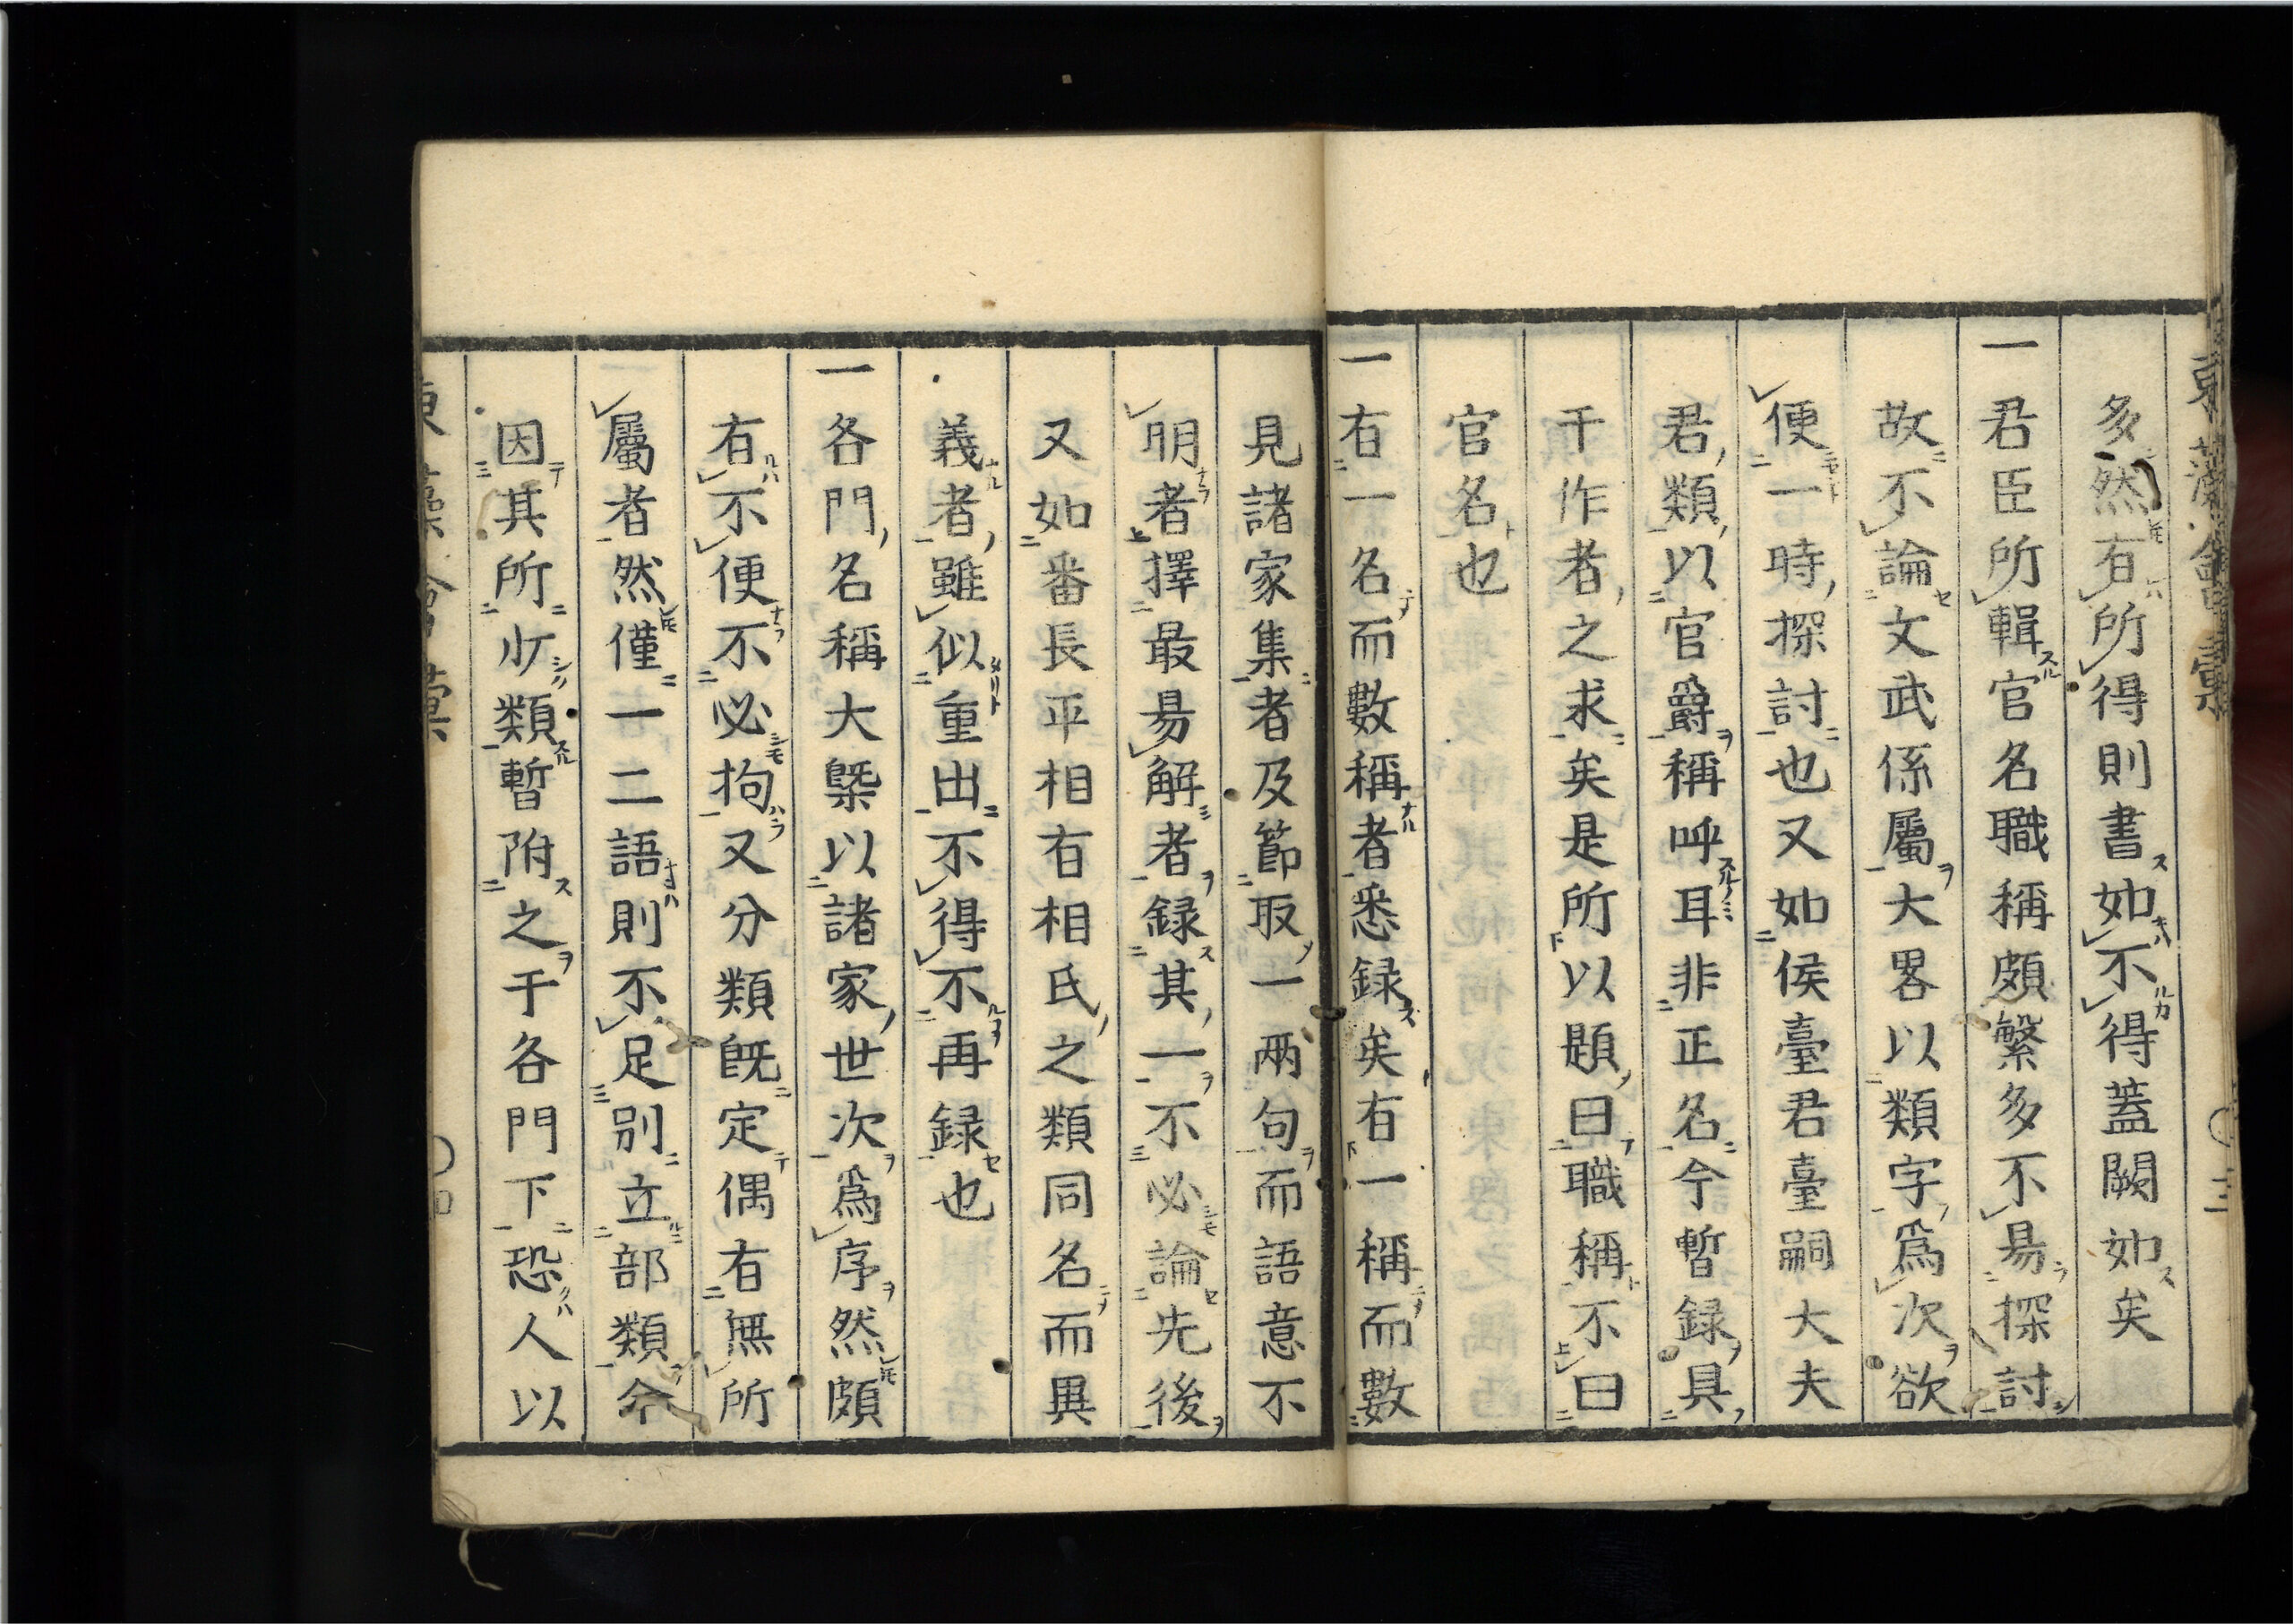 多然有所得則書如不得蓋闕如矣
一君臣所輯官名職稱頗繁多不易探討
故不論文武係屬大畧以類字爲次欲
便一時探討也又如侯臺君臺嗣大夫
君類以官爵稱呼耳非正名今暫録具
干作者之求矣是所以題曰職稱不曰
官名也
一有一名而數稱者悉録矣有一稱而數
見諸家集者及節取一兩句而語意不
明者擇最易解者録其一不必論先後
又如番長平相有相氏之類同名而異
義者雖似重出不得不再録也
一各門名稱大槩以諸家世次爲序然頗
有不便不必拘又分類旣定偶有無所
屬者然僅一二語則不足別立部類今
因其所少類暫附之于各門下恐人以